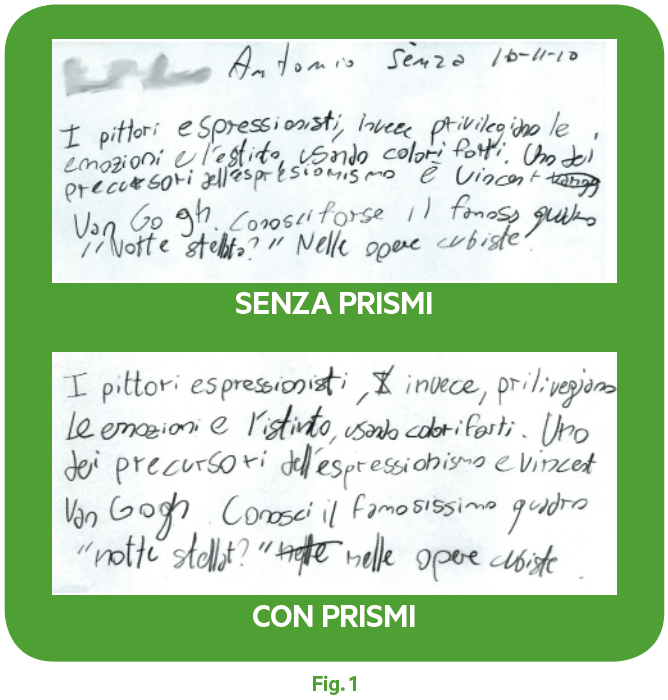 Antonio Senza 10-11-10
I pittori espressionisti, invece privilegiano le
emozioni e l'estinto, usando colori forti. Uno dei
precursori dell'espresionismo è Vincent
Van Go gh. Conosci forse il famoso quadro
"Notte stellata?" Nelle opere cubiste
SENZA PRISMI
I pittori espressionisti, invece, prilivegiano
le emozioni e l'istinto, usando colori forti. Uno
dei precursori dell'espressionismo e vincent
Van Gogh. Conosci il famosissimo quadro
"notte stellat?" nelle opere cubiste.
CON PRISMI
Fig. 1